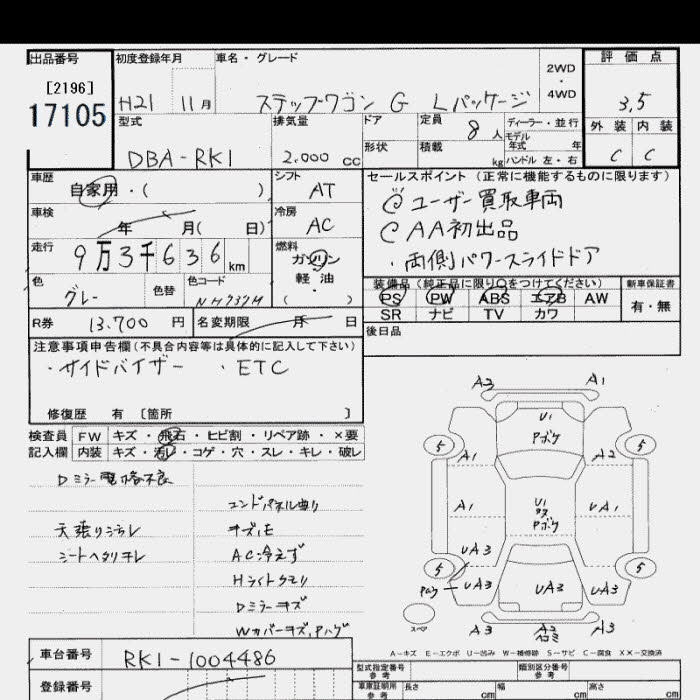 出品番号 初度登録年月 車名・グレード 2WD・4WD 評価点
[2196]
17105
H21 11月 ステップワゴン G Lパッケージ 3.5
型式 排気量 ドア 定員 8人 ディーラー・並行 外装 内装
DBA-RK1 2.000 cc 形状 積載 kg モデル年式 年 ハンドル 左・右 C C
車歴 自家用・( ) シフト AT
セールスポイント (正常に機能するものに限ります)
ユーザー買取車両
AA初出品
・両側パワースライドドア
車検 年 月( 日) 冷房 AC
走行 9万3千636km 燃料 ガソリン 軽油 ・( )
色 グレー 色替 色コード NH737M
装備品 (純正品に限り○をつけてください) 新車保証書
PS PW ABS エアB AW 有・無
SR ナビ TV カワ
R券 13.700円 名変期限 月 日 後日品
注意事項申告欄(不具合内容等は具体的に記入して下さい)
・サイドバイザー ・ETC
修復歴 有 [箇所 ]
検査員 FW キズ・飛石・ヒビ割・リペア跡・×要
記入欄 内装 キズ・汚レ・コゲ・穴・スレ・キレ・破レ
Dミラー電格不良
エンドパネル曲り
天張りヨゴレ
シートヘタリヨレ
AC冷えず
Hライトクモリ
Dミラーキズ
Wカバーキズ,ハゲ
A2 A1
U1
Pボケ
5 5
A1 A2
A1 U1 UA1
Pボケ
UA3
5 5
UA3 UA3 UA3
スペア A3 A2 A3
A-キズ E-エクボ U-凹み W-補修跡 S-サビ C-腐食 XX-交換済
車台番号 RK1-1004486
登録番号
型式指定番号 参考 類別区分番号 参考
車庫証明用 参考 長さ cm 幅 cm 高さ cm